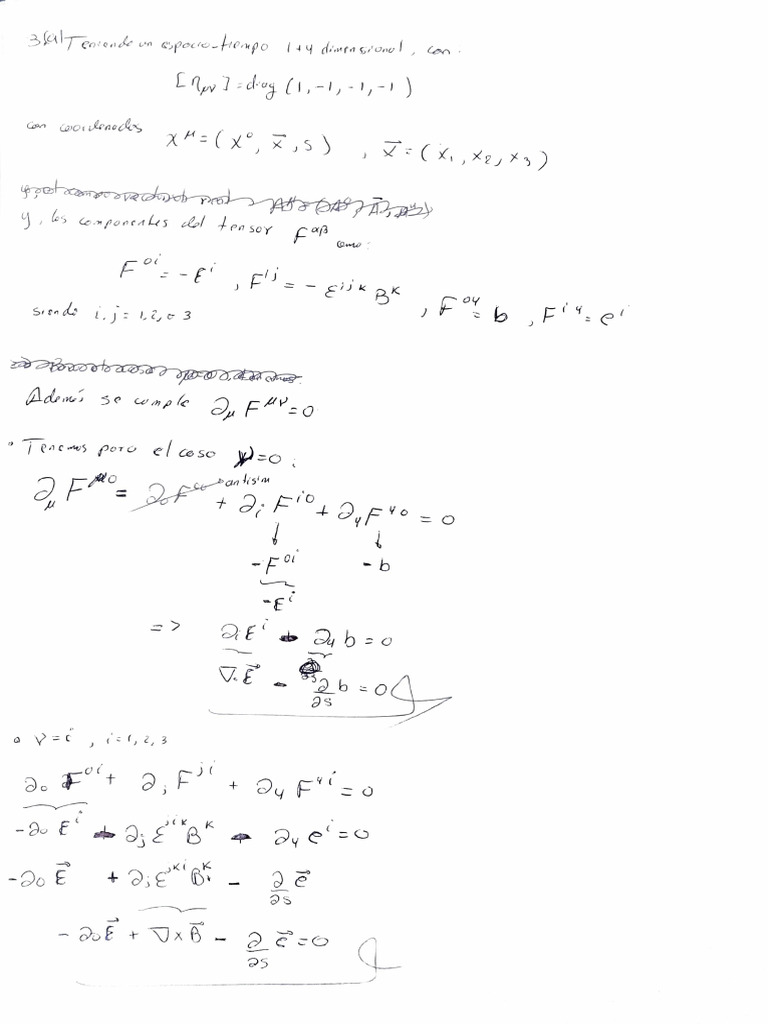 3(a) Teniendo un espacio-tiempo 1+4 dimensional, con:
[η_{μν}] = diag (1, -1, -1, -1)
con coordenadas x^μ = (x^0, \vec{x}, s) , \vec{x} = (x_1, x_2, x_3)
y, los componentes del tensor F^{αβ} como:
F^{0i} = - E^i , F^{ij} = - ε^{ijk} B^k , F^{04} = b , F^{i4} = e^i
siendo i, j = 1, 2, o 3
Además se cumple ∂_μ F^{μν} = 0
• Tenemos para el caso ν = 0 :
∂_μ F^{μ0} = ∂_0 F^{00} antisim + ∂_i F^{i0} + ∂_4 F^{40} = 0
↓ ↓
- F^{0i} - b
- E^i
=> ∂_i E^i - ∂_4 b = 0
∇ · \vec{E} - ∂/∂s b = 0
• ν = i , i = 1, 2, 3
∂_0 F^{0i} + ∂_j F^{ji} + ∂_4 F^{4i} = 0
- ∂_0 E^i - ∂_j ε^{jik} B^k - ∂_4 e^i = 0
- ∂_0 \vec{E} + ∂_j ε^{jki} B^k - ∂/∂s \vec{e}
- ∂_0 \vec{E} + ∇ × \vec{B} - ∂/∂s \vec{e} = 0